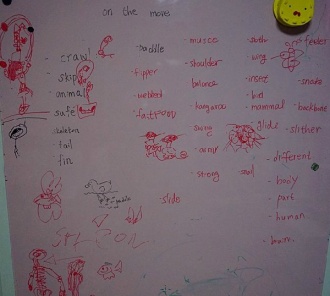 on the moves
crawl
skip
animal
safe
skeleton
tail
fin
paddle
flipper
webbed
muscle
shoulder
balance
kangaroo
swing
strong
slide
wing
insect
bird
mammal
glide
seal
feeler
snake
backbone
slither
different
body
part
human
brain